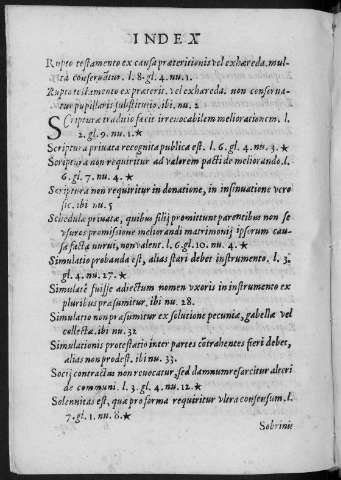 INDEX
Rupto testamento ex causa præteritionis vel exhæreda. mul-
ta conseruãtur. l. 8. gl. 4. nu. 1.
Rupto testamento ex præterit. vel exhæreda. non conserua-
tur pupillaris substitutio. ibi. nu. 2
SCripturæ traditio facit irreuocabilem meliorationem. l.
2. gl. 9. nu. 1. ★
Scriptura priuata recognita publica est. l. 6. gl. 4. nu. 3. ★
Scriptura non requiritur ad valorem pacti de meliorando. l.
6. gl. 7. nu. 4. ★
Scriptura non requiritur in donatione, in insinuatione vero
sic. ibi nu. 5
Schedulæ priuatæ, quibus filij promittunt parentibus non se
vsuros promissione meliorandi matrimonij ipsorum cau-
sa facta nurui, non valent. l. 6. gl. 10. nu. 4. ★
Simulatio probanda est, alias stari debet instrumento. l. 3.
gl. 4. nu. 27. ★
Simulatè fuisse adiectum nomen vxoris in instrumento ex
pluribus præsumitur. ibi nu. 28.
Simulatio non præsumitur ex solutione pecuniæ, gabellæ vel
collectæ. ibi nu. 32
Simulationis protestatio inter partes cõtrahentes fieri debet,
alias non prodest. ibi nu. 33.
Socij contractui non reuocatur, sed damnum resarcitur alteri
de communi. l. 3. gl. 4. nu. 12. ★
Solennitas est, quæ pro forma requiritur vltra consensum. l.
7. gl. 1. nu. 8. ★
Sobrinus